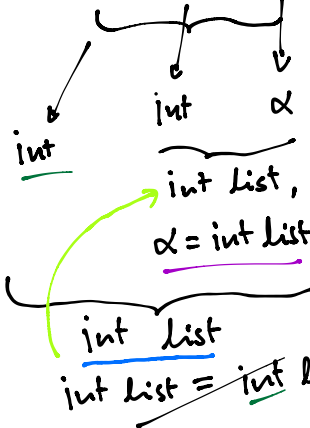 int α
int
int list,
α = int list
int list
int list = int l